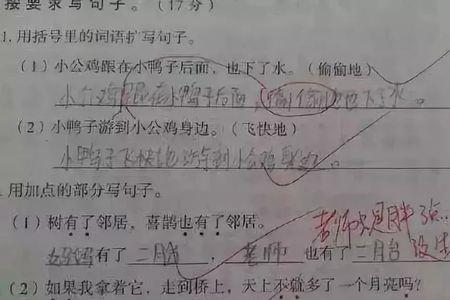 按要求写句子。(17分)
1.用括号里的词语扩写句子。
(1)小公鸡跟在小鸭子后面,也下了水。(偷偷地)
小公鸡跟在小鸭子后面,偷偷地也下了水。
(2)小鸭子游到小公鸡身边。(飞快地)
小鸭子飞快地游到小公鸡身边。
用加点的部分写句子。
(1)树有了邻居,喜鹊也有了邻居。
老师只是胖了点
妈妈有了二月台,老师也有了二月台 没生
(2)如果我拿着它,走到桥上,天上不就多了一个月亮吗?